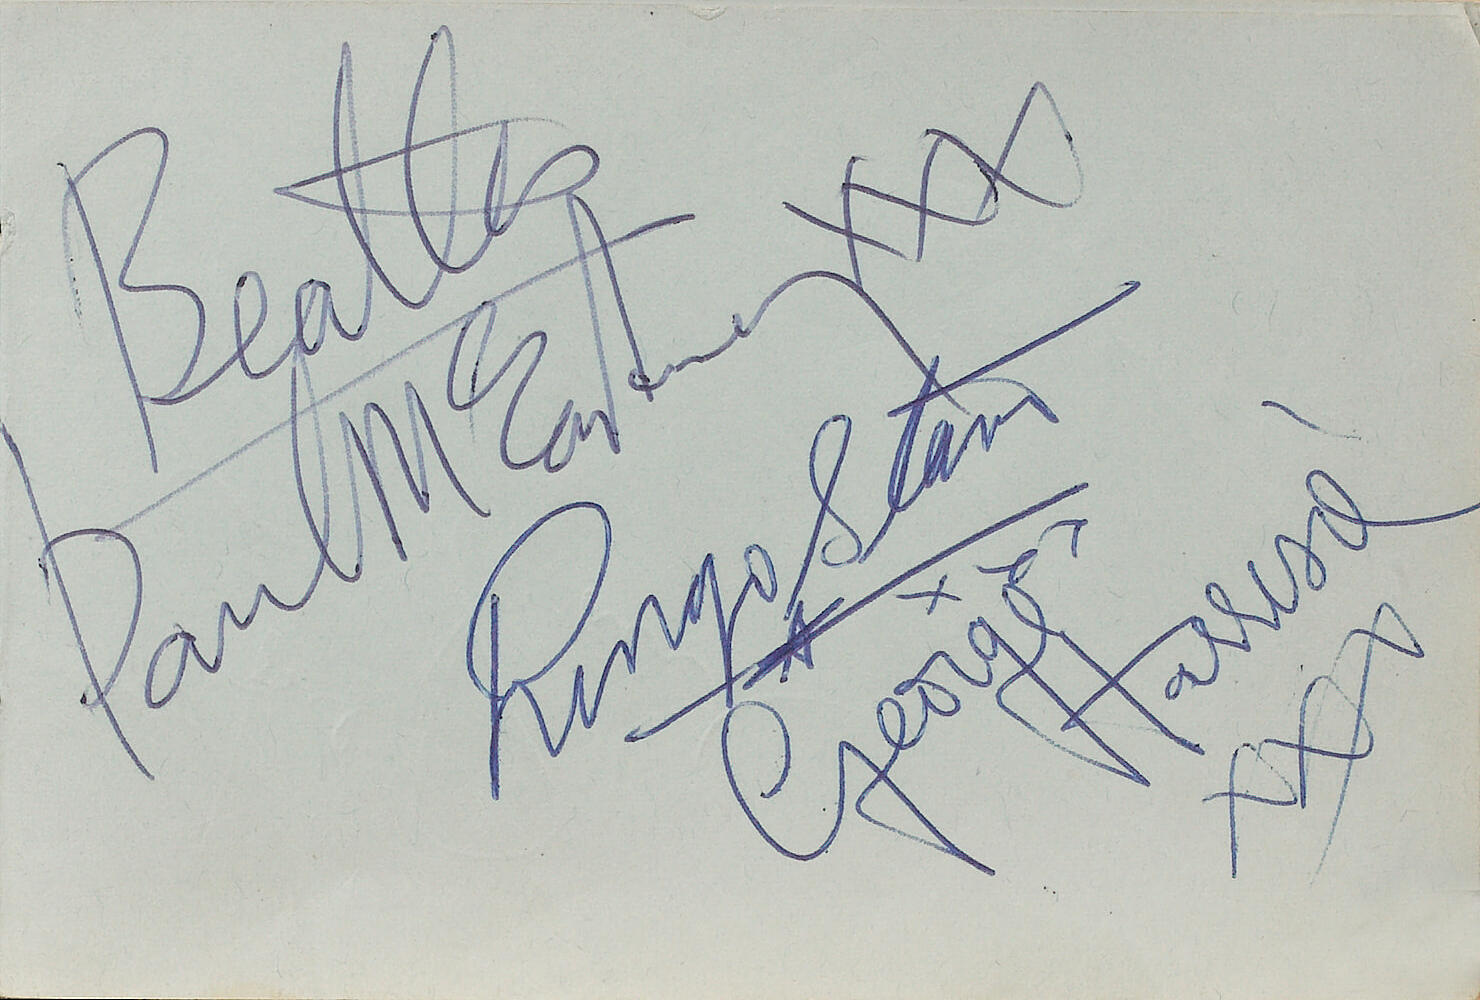 Beatles
Paul McCartney xxx
Ringo Starr
x x x
George Harrison
xxx